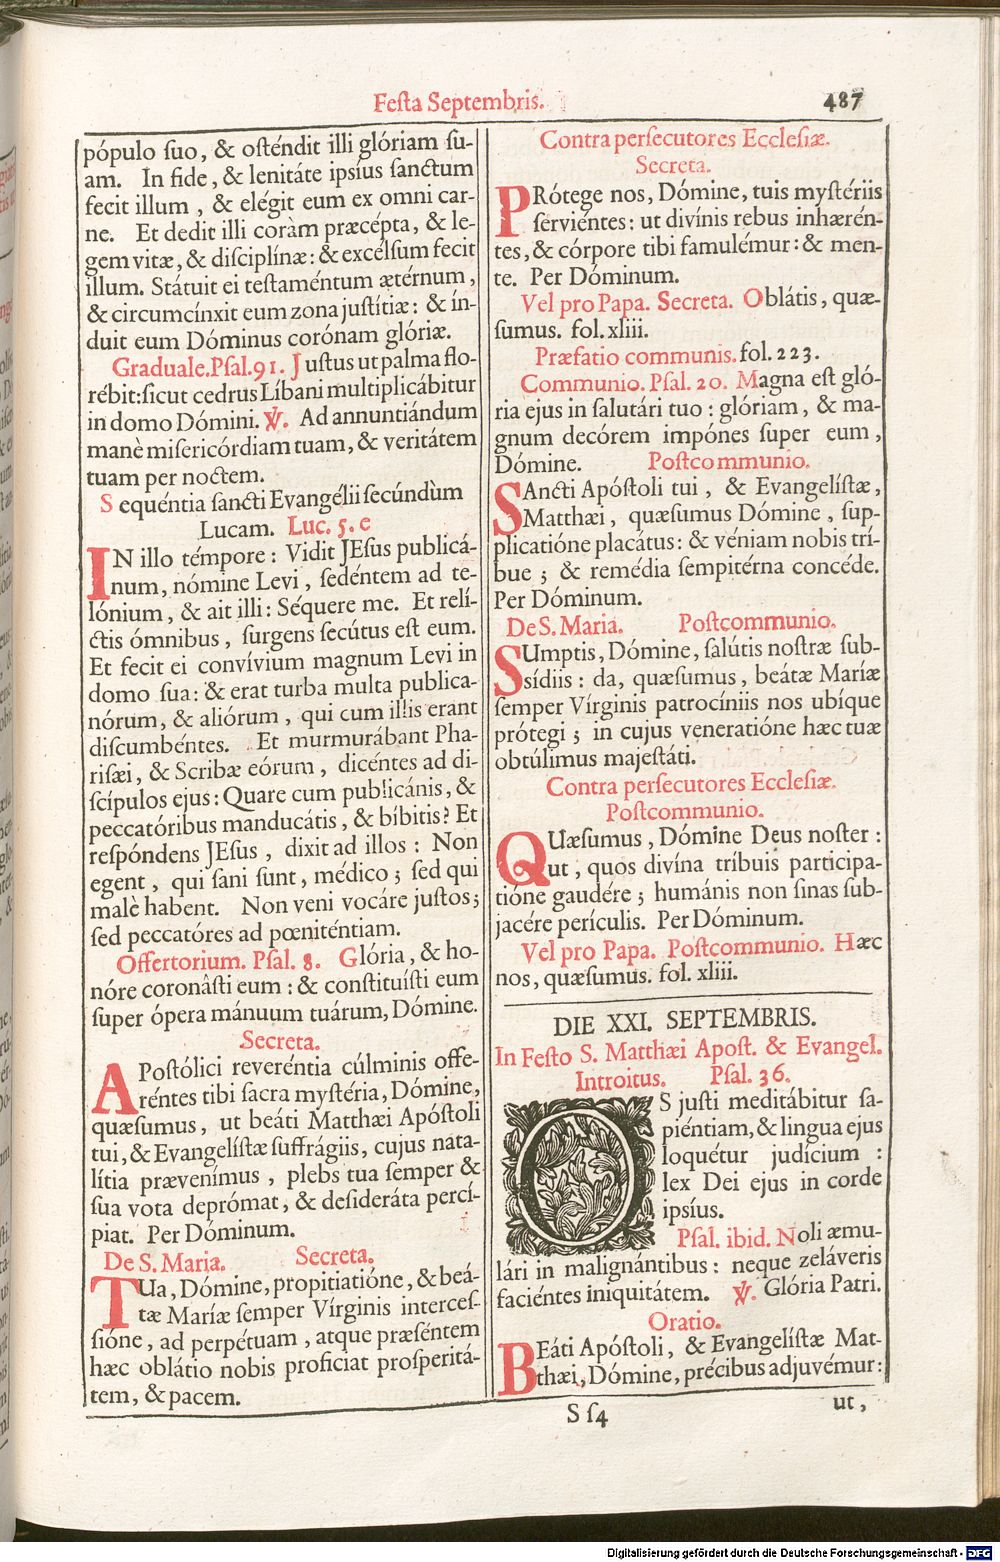 Feſta Septembris.
487
pópulo ſuo, & oſténdit illi glóriam ſu-
am. In fide, & lenitáte ipsíus ſanctum
fecit illum, & elégit eum ex omni car-
ne. Et dedit illi coràm præcépta, & le-
gem vitæ, & diſciplínæ: & excélſum fecit
illum. Státuit ei teſtaméntum ætérnum,
& circumcínxit eum zona juſtítiæ: & ín-
duit eum Dóminus corónam glóriæ.
Graduale. Pſal. 91. Juſtus ut palma flo-
rébit: ſicut cedrus Líbani multiplicábitur
in domo Dómini. ℣. Ad annuntiándum
manè miſericórdiam tuam, & veritátem
tuam per noctem.
Sequéntia ſancti Evangélii ſecúndùm
Lucam. Luc. 5. e
IN illo témpore: Vidit JEſus publicá-
num, nómine Levi, ſedéntem ad te-
lónium, & ait illi: Séquere me. Et relí-
ctis ómnibus, ſurgens ſecútus eſt eum.
Et fecit ei convívium magnum Levi in
domo ſua: & erat turba multa publica-
nórum, & aliórum, qui cum illis erant
diſcumbéntes. Et murmurábant Pha-
riſæi, & Scribæ eórum, dicéntes ad di-
ſcípulos ejus: Quare cum publicánis, &
peccatóribus manducátis, & bíbitis? Et
reſpóndens JEſus, dixit ad illos: Non
egent, qui ſani ſunt, médico; ſed qui
malè habent. Non veni vocáre juſtos;
ſed peccatóres ad pœniténtiam.
Offertorium. Pſal. 8. Glória, & ho-
nóre coronâſti eum: & conſtituíſti eum
ſuper ópera mánuum tuárum, Dómine.
Secreta.
APoſtólici reveréntia cúlminis offe-
réntes tibi ſacra myſtéria, Dómine,
quæſumus, ut beáti Matthæi Apóſtoli
tui, & Evangelíſtæ ſuffrágiis, cujus nata-
lítia prævenímus, plebs tua ſemper &
ſua vota deprómat, & deſideráta percí-
piat. Per Dóminum.
De S. Maria. Secreta.
TUa, Dómine, propitiatióne, & beá-
tæ Maríæ ſemper Vírginis interceſ-
ſióne, ad perpétuam, atque præſéntem
hæc oblátio nobis proficiat proſperitá-
tem, & pacem.
Contra perſecutores Eccleſiæ.
Secreta.
PRótege nos, Dómine, tuis myſtériis
ſerviéntes: ut divínis rebus inhærén-
tes, & córpore tibi famulémur: & men-
te. Per Dóminum.
Vel pro Papa. Secreta. Oblátis, quæ-
ſumus. fol. xliii.
Præfatio communis. fol. 223.
Communio. Pſal. 20. Magna eſt gló-
ria ejus in ſalutári tuo: glóriam, & ma-
gnum decórem impónes ſuper eum,
Dómine. Poſtcommunio.
SAncti Apóſtoli tui, & Evangelíſtæ,
Matthæi, quæſumus Dómine, ſup-
plicatióne placátus: & véniam nobis trí-
bue; & remédia ſempitérna concéde.
Per Dóminum.
De S. Maria. Poſtcommunio.
SUmptis, Dómine, ſalútis noſtræ ſub-
sídiis: da, quæſumus, beátæ Maríæ
ſemper Vírginis patrocíniis nos ubíque
prótegi; in cujus veneratióne hæc tuæ
obtúlimus majeſtáti.
Contra perſecutores Eccleſiæ.
Poſtcommunio.
QUæſumus, Dómine Deus noſter:
ut, quos divína tríbuis participa-
tióne gaudére; humánis non ſinas ſub-
jacére perículis. Per Dóminum.
Vel pro Papa. Poſtcommunio. Hæc
nos, quæſumus. fol. xliii.
DIE XXI. SEPTEMBRIS.
In Feſto S. Matthæi Apoſt. & Evangel.
Introitus. Pſal. 36.
OS juſti meditábitur ſa-
piéntiam, & lingua ejus
loquétur judícium:
lex Dei ejus in corde
ipsíus.
Pſal. ibid. Noli æmu-
lári in malignántibus: neque zeláveris
faciéntes iniquitátem. ℣. Glória Patri.
Oratio.
BEáti Apóſtoli, & Evangelíſtæ Mat-
thæi, Dómine, précibus adjuvémur:
S ſ4
ut,
Digitalisierung gefördert durch die Deutsche Forschungsgemeinschaft - DFG